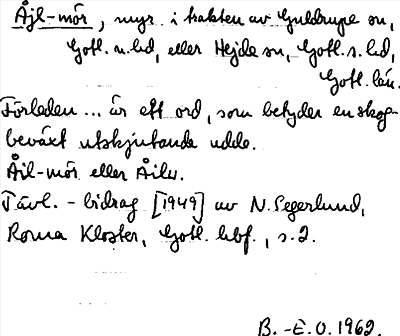 Åjl-mör, myr i trakten av Guldrupe sn,
Gotl. n. hd, eller Hejde sn, Gotl. s. hd,
Gotl. län.
Förleden ... är ett ord, som betyder en skog-
beväxt utskjutande udde.
Åil-mör eller Åilu.
Tävl.-bidrag [1949] av N. Segerlund,
Roma Kloster, Gotl. hbf., s. 2.
B.-E. O. 1962.